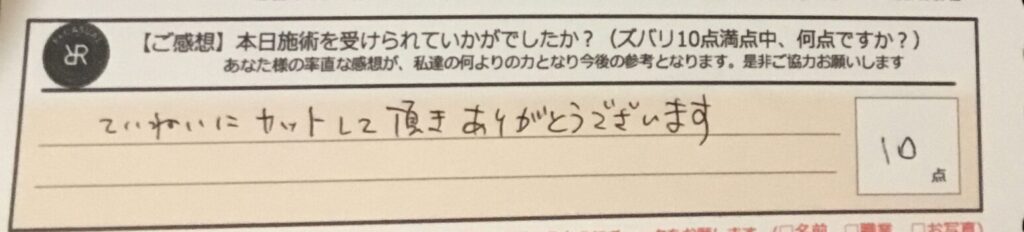 【ご感想】本日施術を受けられていかがでしたか？（ズバリ10点満点中、何点ですか？）
あなた様の率直な感想が、私達の何よりの力となり今後の参考となります。是非ご協力お願いします
ていねいにカットして頂きありがとうございます
10
点
（□名前 □職業 □お写真）